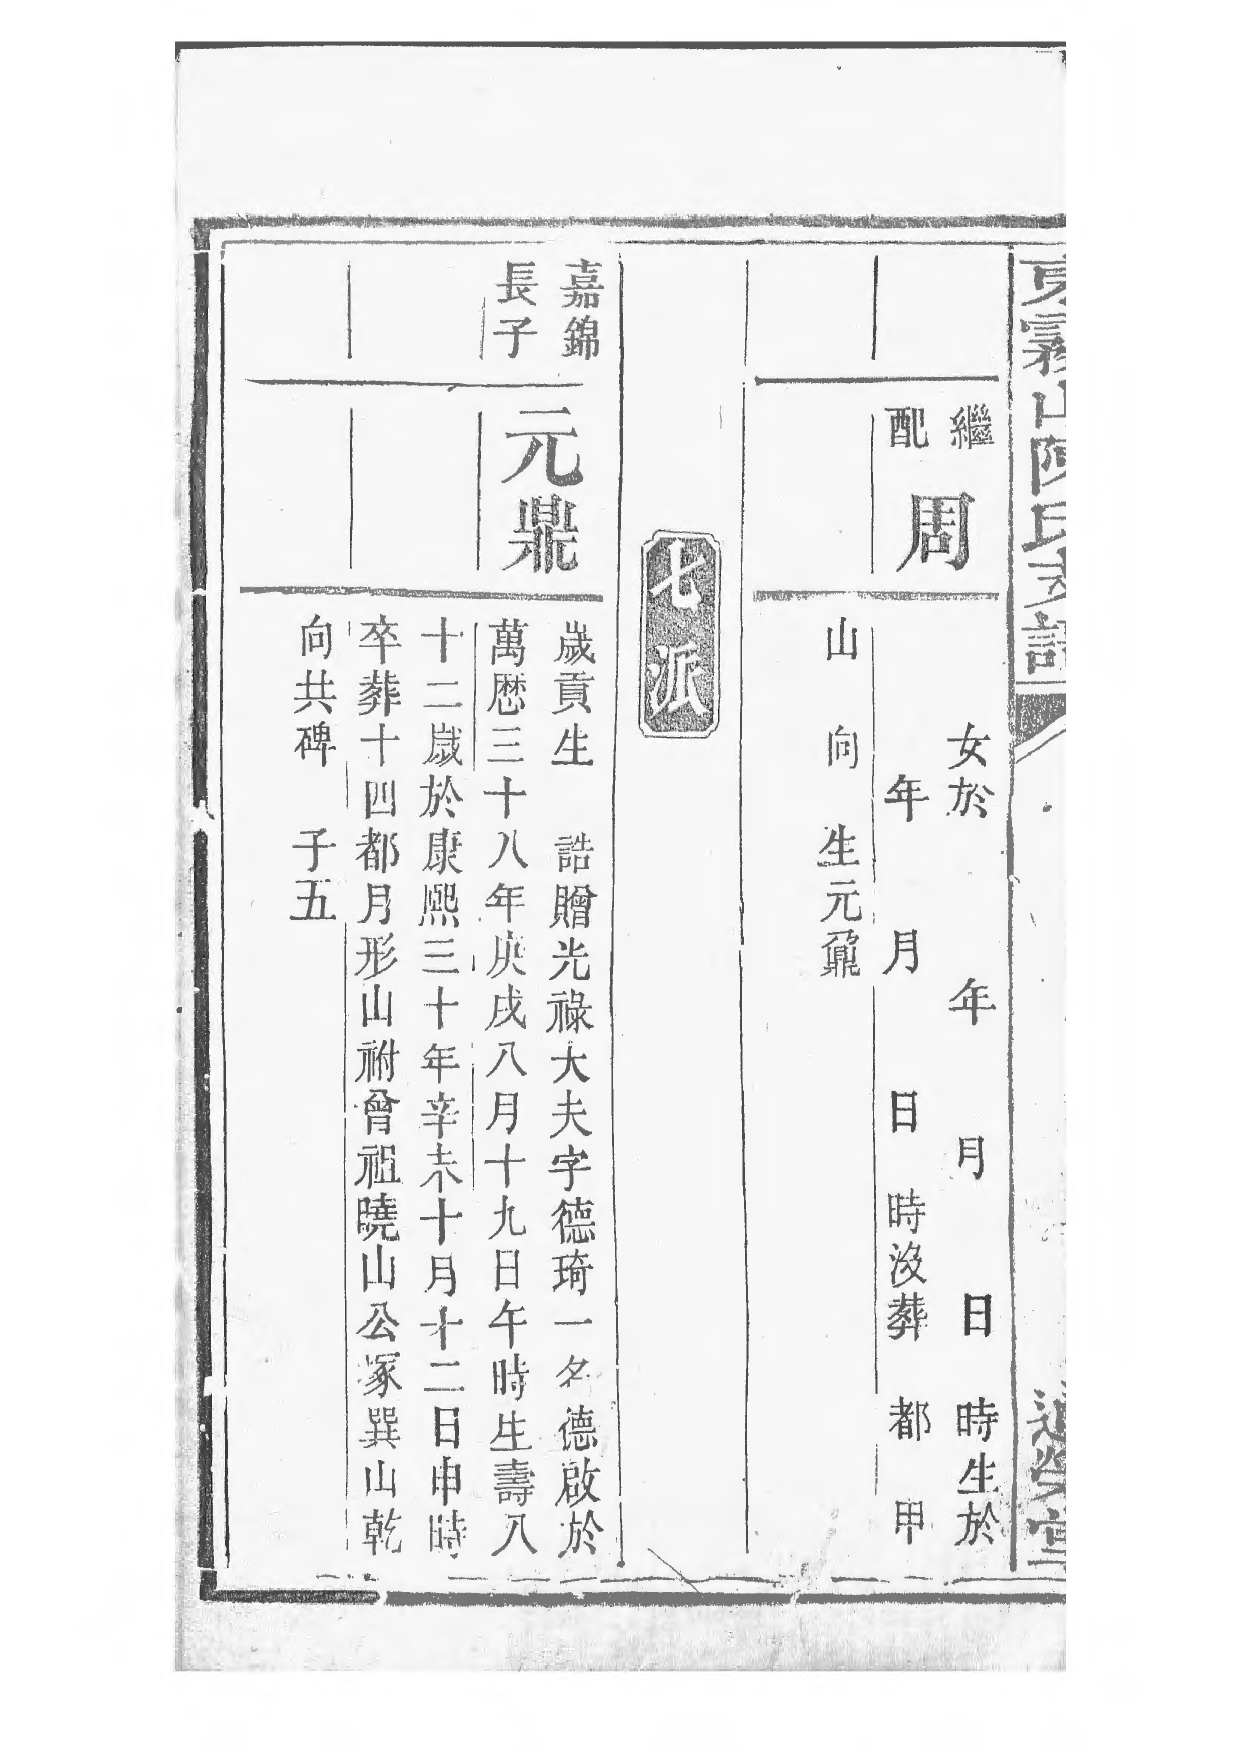 東霧山陳氏支譜
繼配
周
女於 年 月 日 時生於
年 月 日 時沒葬 都 甲
山 向 生元鼐
七派
嘉錦
長子
元鼎
歲貢生 誥贈光祿大夫字德琦一名德啟於
萬厯三十八年庚戌八月十九日午時生壽八
十二歲於康熙三十年辛未十月十二日申時
卒葬十四都月形山祔曾祖曉山公塚巽山乾
向共碑 子五